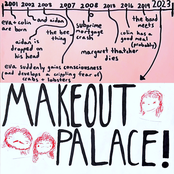 2001 2002 2003 2005 2008 2015 2016 2019 2023
eva + colin
are born
and aidan
the bee
thing
subprime
mortgage
crash
the band
meets
colin has
a good meal
(probably)
aidan is
dropped on
his head
margaret thatcher
dies
eva suddenly gains consciousness
and develops a crippling fear of
crabs + lobsters
MAKEOUT
PALACE!